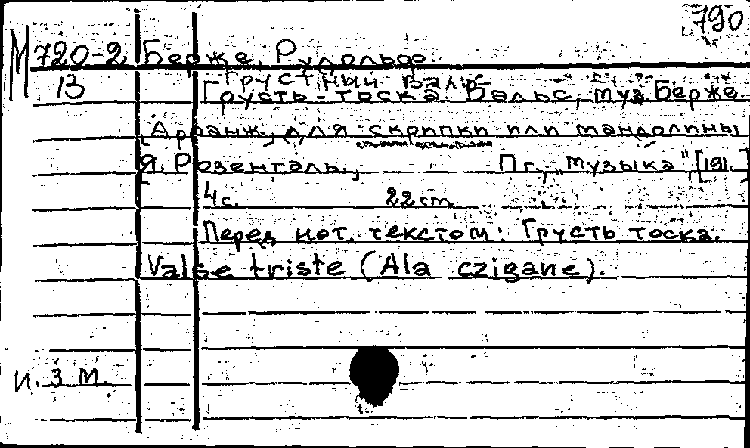 790
М720-2 Берже, Рудольф.
Грустный вальс
13 Грусть-тоска. Вальс, муз. Берже.
Аранж. для скрипки или мандолины
Я. Розенталь, Пг., "Музыка", [191.]
4с. 22 cm.
Перед нот. текстом: Грусть тоска.
Valse triste (Ala czigane).
И. З. М.